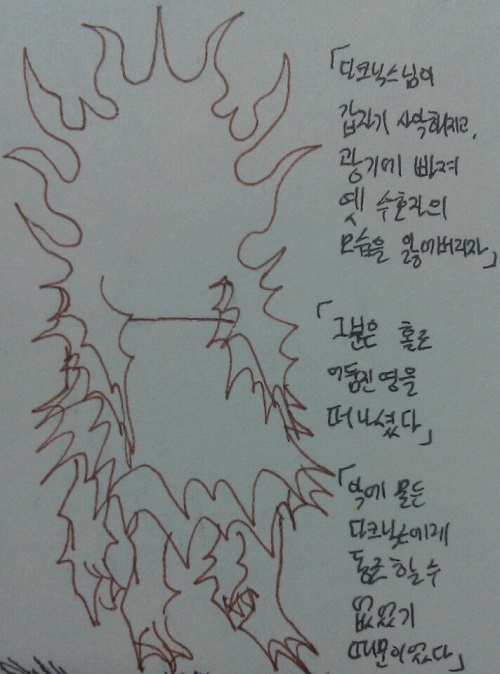 「다크닉스님이
갑자기 사악해지고,
광기에 빠져
옛 수호자의
모습을 잃어버리자」
「그분은 홀로
어둠진영을
떠나셨다」
「악에 물든
다크닉스에게
동조할 수
없었기
때문이었다」